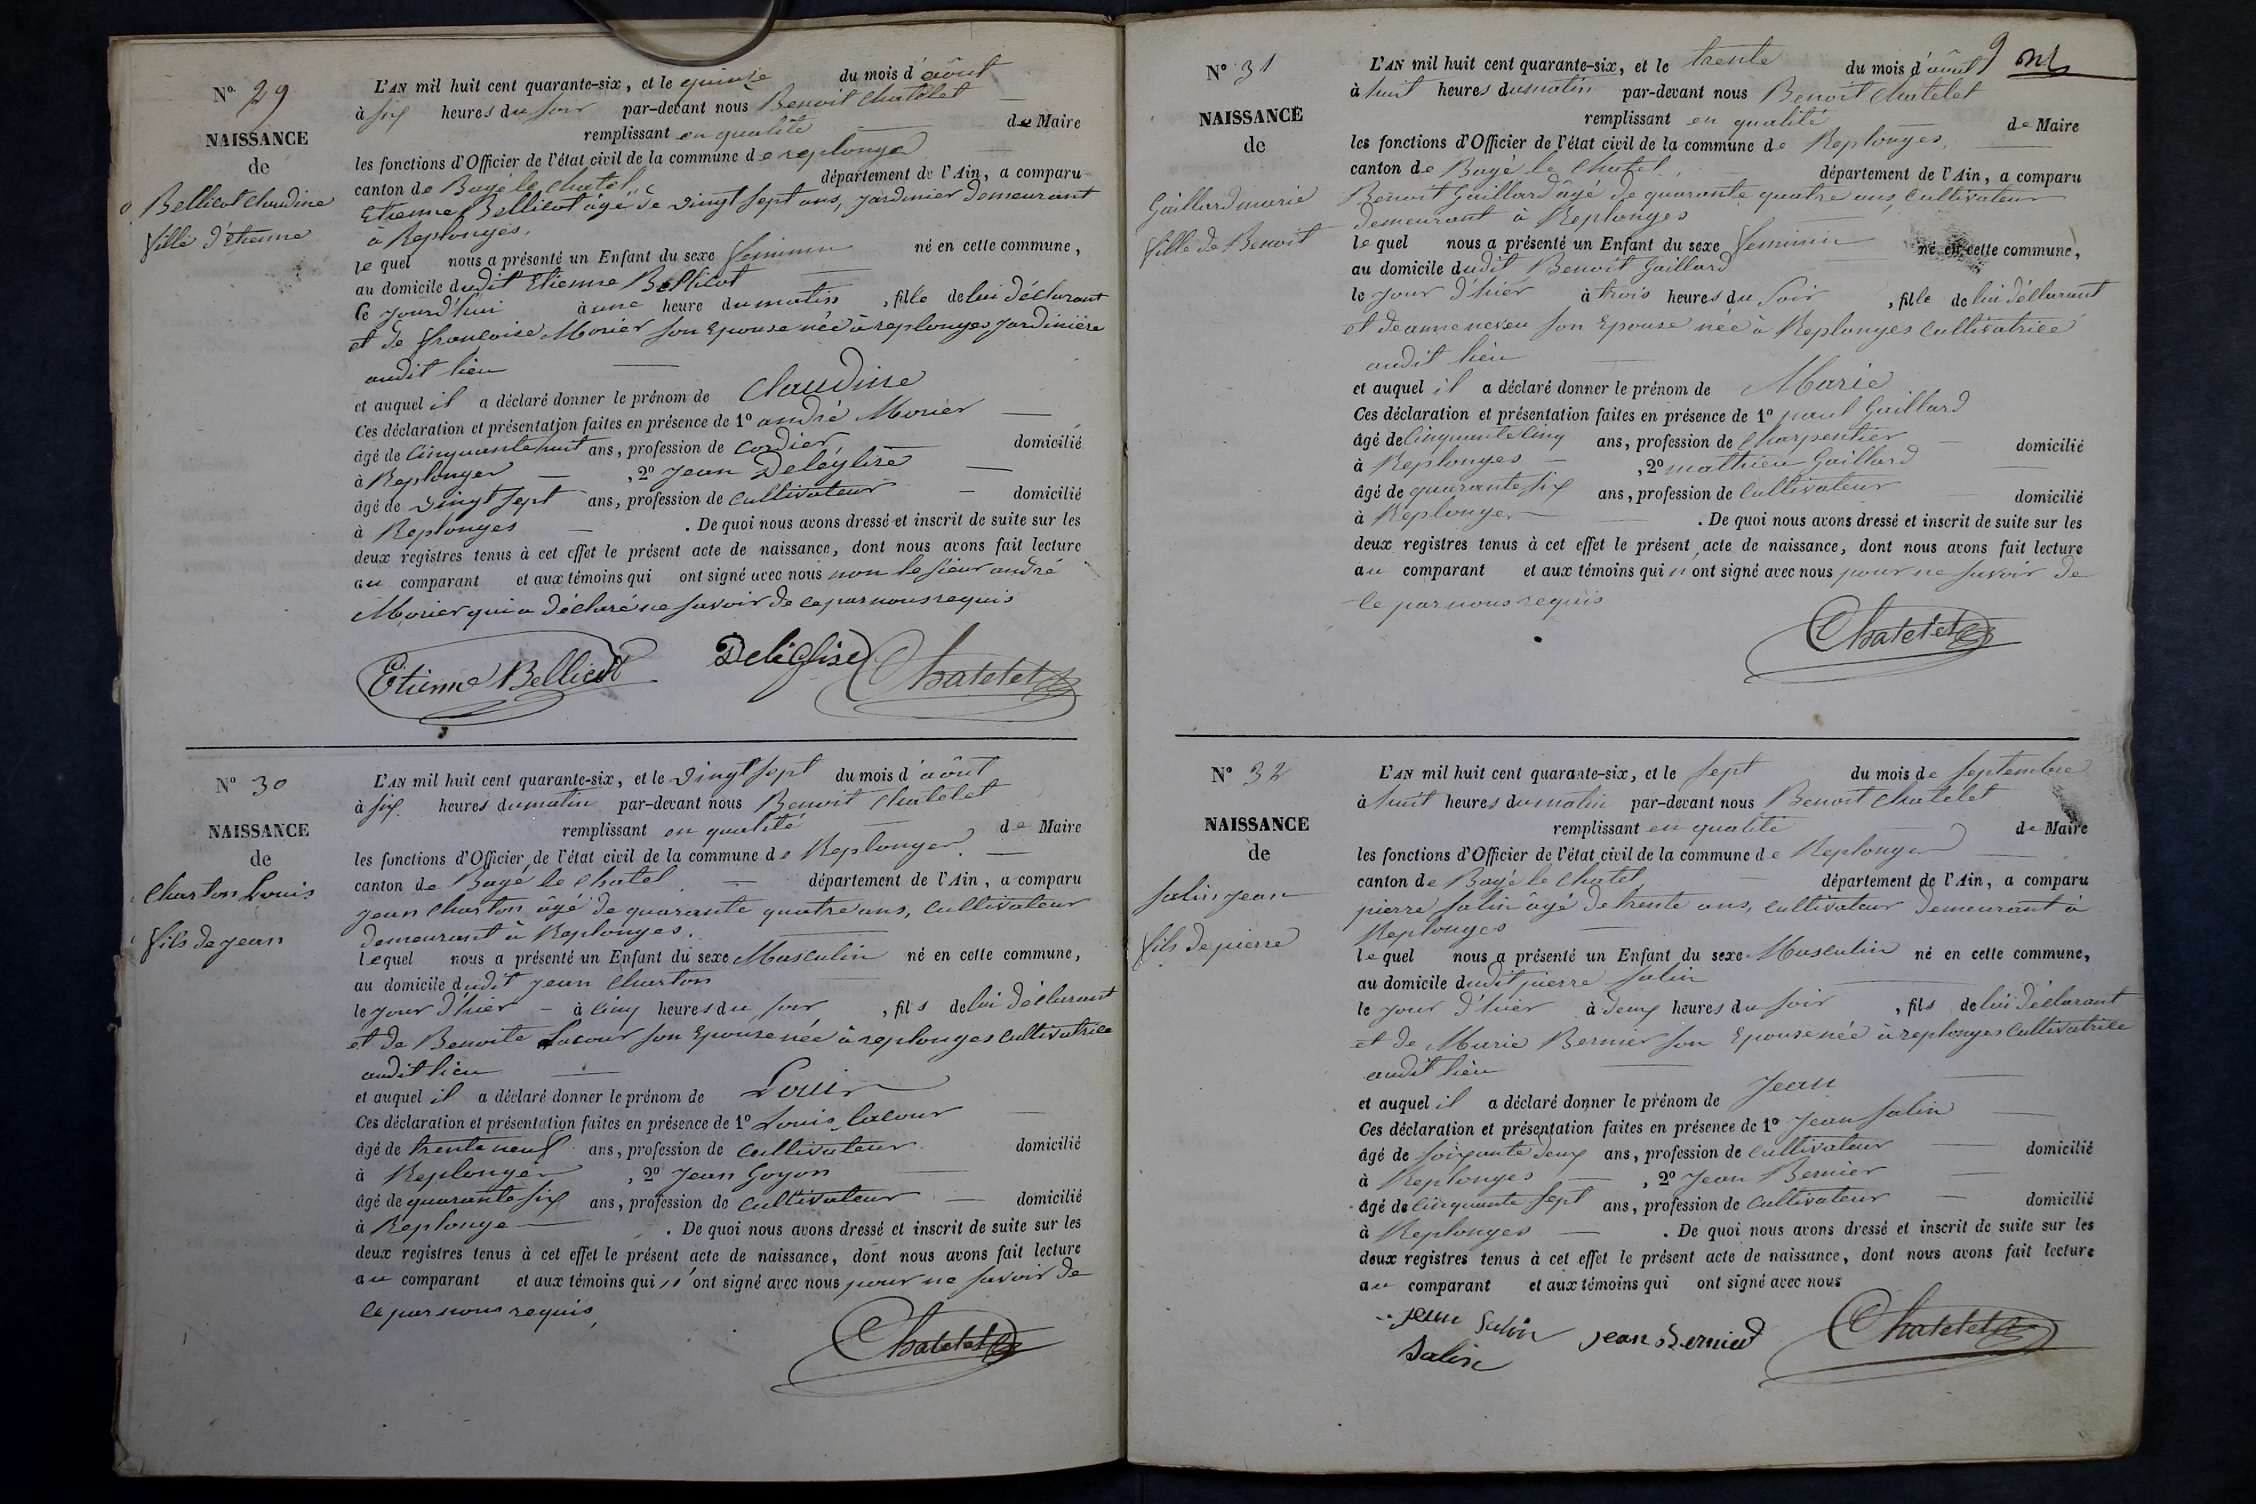 N° 29
NAISSANCE
de
Bellicot Claudine
fille d'étienne
L'AN mil huit cent quarante-six, et le quinze du mois d'août
à six heures du soir par-devant nous Benoit Chatelet
remplissant en qualité de Maire
les fonctions d'Officier de l'état civil de la commune de replonges
canton de Bagé le Chatel département de l'Ain, a comparu
Etienne Bellicot âgé de vingt sept ans, jardinier demeurant
à Replonges.
lequel nous a présenté un Enfant du sexe feminin né en cette commune,
au domicile dudit Etienne Bellicot
Ce jourd'hui à une heure du matin, fille de lui déclarant
et de françoise Morier son Epouse née à replonges jardinière
audit lieu
et auquel il a déclaré donner le prénom de Claudine
Ces déclaration et présentation faites en présence de 1° andré Morier
âgé de cinquante huit ans, profession de cordier domicilié
à Replonges, 2° Jean Deléglise
âgé de vingt sept ans, profession de cultivateur domicilié
à Replonges. De quoi nous avons dressé et inscrit de suite sur les
deux registres tenus à cet effet le présent acte de naissance, dont nous avons fait lecture
au comparant et aux témoins qui ont signé avec nous non le sieur andré
Morier qui a déclaré ne savoir de ce par nous requis
Etienne Bellicot Deléglise Chatelet
N° 30
NAISSANCE
de
Charton Louis
fils de jean
L'AN mil huit cent quarante-six, et le vingt sept du mois d'août
à six heures du matin par-devant nous Benoit Chatelet
remplissant en qualité de Maire
les fonctions d'Officier de l'état civil de la commune de Replonges
canton de Bagé le Chatel département de l'Ain, a comparu
jean Charton âgé de quarante quatre ans, cultivateur
demeurant à Replonges.
lequel nous a présenté un Enfant du sexe Masculin né en cette commune,
au domicile dudit jean Charton
le jour d'hier à cinq heures du soir, fils de lui déclarant
et de Benoite Lacour son Epouse née à replonges cultivatrice
audit lieu
et auquel il a déclaré donner le prénom de Louis
Ces déclaration et présentation faites en présence de 1° Louis Lacour
âgé de trente neuf ans, profession de cultivateur domicilié
à Replonges, 2° Jean Goyon
âgé de quarante six ans, profession de cultivateur domicilié
à Replonge. De quoi nous avons dressé et inscrit de suite sur les
deux registres tenus à cet effet le présent acte de naissance, dont nous avons fait lecture
au comparant et aux témoins qui n'ont signé avec nous pour ne savoir de
ce par nous requis,
Chatelet
9
N° 31
NAISSANCE
de
Gaillard marie
fille de Benoit
L'AN mil huit cent quarante-six, et le trente du mois d'août
à huit heures du matin par-devant nous Benoit Chatelet
remplissant en qualité de Maire
les fonctions d'Officier de l'état civil de la commune de Replonges,
canton de Bagé le Chatel département de l'Ain, a comparu
Benoit Gaillard âgé de quarante quatre ans, cultivateur
demeurant à Replonges
lequel nous a présenté un Enfant du sexe feminin né en cette commune,
au domicile dudit Benoit Gaillard
le jour d'hier à trois heures du soir, fille de lui déclarant
et de anne neveu son Epouse née à Replonges cultivatrice
audit lieu
et auquel il a déclaré donner le prénom de Marie
Ces déclaration et présentation faites en présence de 1° paul Gaillard
âgé de cinquante cinq ans, profession de Charpentier domicilié
à Replonges, 2° mathieu Gaillard
âgé de quarante six ans, profession de Cultivateur domicilié
à Replonges. De quoi nous avons dressé et inscrit de suite sur les
deux registres tenus à cet effet le présent acte de naissance, dont nous avons fait lecture
au comparant et aux témoins qui n'ont signé avec nous pour ne savoir de
ce par nous requis
Chatelet
N° 32
NAISSANCE
de
Salin jean
fils de pierre
L'AN mil huit cent quarante-six, et le sept du mois de septembre
à huit heures du matin par-devant nous Benoit Chatelet
remplissant en qualité de Maire
les fonctions d'Officier de l'état civil de la commune de Replonges
canton de Bagé le Chatel département de l'Ain, a comparu
pierre Salin âgé de trente ans, cultivateur demeurant à
Replonges
lequel nous a présenté un Enfant du sexe Masculin né en cette commune,
au domicile dudit pierre Salin
le jour d'hier à deux heures du soir, fils de lui déclarant
et de Marie Bernier son Epouse née à replonges cultivatrice
audit lieu
et auquel il a déclaré donner le prénom de Jean
Ces déclaration et présentation faites en présence de 1° Jean Salin
âgé de soixante deux ans, profession de cultivateur domicilié
à Replonges, 2° Jean Bernier
âgé de cinquante sept ans, profession de cultivateur domicilié
à Replonges. De quoi nous avons dressé et inscrit de suite sur les
deux registres tenus à cet effet le présent acte de naissance, dont nous avons fait lecture
au comparant et aux témoins qui ont signé avec nous
jean Salin jean Bernier Chatelet
Salin